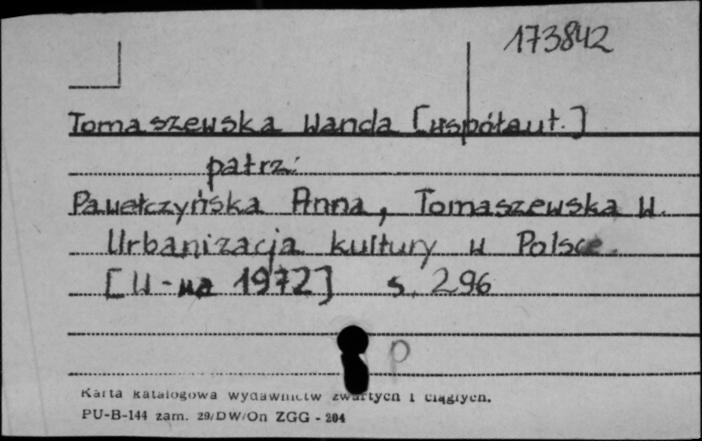 173842
Tomaszewska Wanda [współaut.]
patrz:
Pawełczyńska Anna, Tomaszewska W.
Urbanizacja kultury w Polsce.
[W-wa 1972] s. 296
p
Karta katalogowa wydawnictw zwartych i ciągłych.
PU-B-144 zam. 29/DW/On ZGG - 204